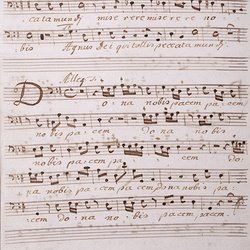 cata mundi miserere miserere no
bis Agnus Dei qui tollis peccata mundi
Allegro
Dona nobis pacem pacem
nobis pacem dona
nobis pacem pa cem do
na nobis pacem pa cem pacem dona nobis pa
cem dona nobis pacem pacem.